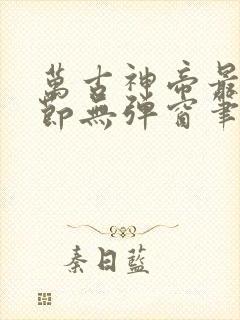 萬古神帝最
節無彈窗筆
秦日藍